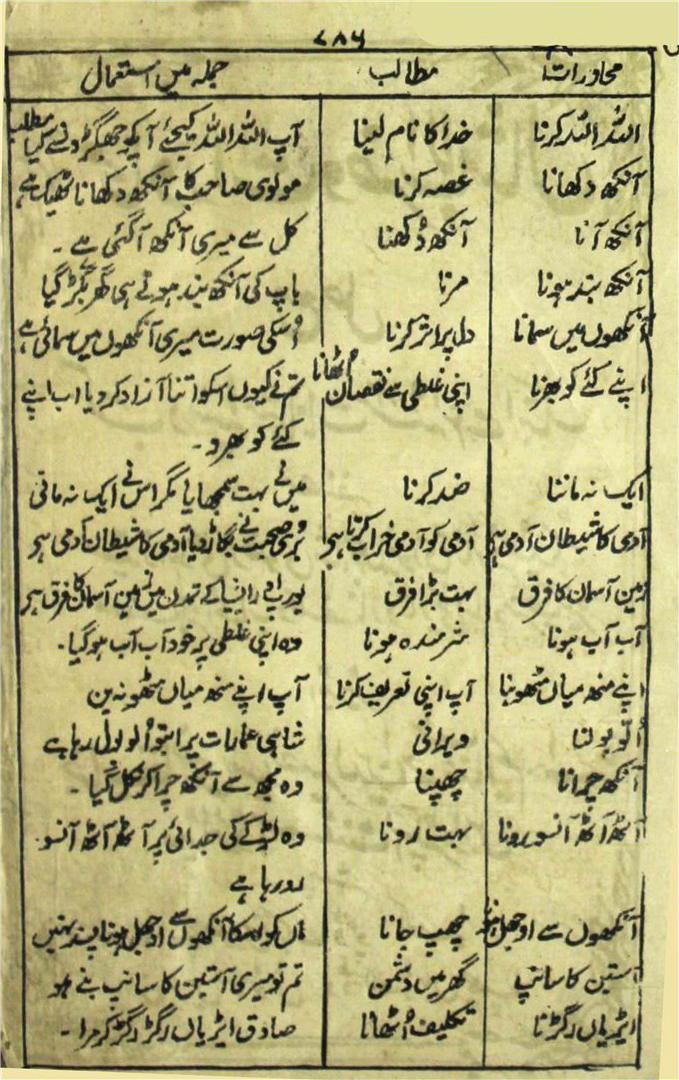 ۷۸۶
محاورات مطالب جملہ میں استعمال
اللہ اللہ کرنا خدا کا نام لینا آپ اللہ اللہ کیجئے آپکو جھگڑونسے کیا مطلب
آنکھ دکھانا غصہ کرنا مولوی صاحب کا آنکھ دکھانا ٹھیک ہے
آنکھ آنا آنکھ دُکھنا کل سے میری آنکھ آگئی ہے ۔
آنکھ بند ہونا مرنا باپ کی آنکھ بند ہوتے ہی گھر بگڑ گیا
آنکھوں میں سمانا دل پر اثر کرنا اُسکی صورت میری آنکھوں میں سمائی ہے
اپنے کئے کو بھرنا اپنی غلطی سے نقصان اُٹھانا تم نے کیوں اسکو اتنا آزاد کردیا اب اپنے
کئے کو بھرو ۔
ایک نہ ماننا ضد کرنا میں نے بہت سمجھایا مگر اس نے ایک نہ مانی
آدمی کا شیطان آدمی ہے آدمی کو آدمی خراب کرتا ہے بُری صحبت نے بگاڑ دیا آدمی کا شیطان آدمی ہے
زمین آسمان کا فرق بہت بڑا فرق یورپ اور ایشیا کے تمدن میں زمین آسمان کا فرق ہے
آب آب ہونا شرمندہ ہونا وہ اپنی غلطی پر خود آب آب ہوگیا ۔
اپنے منھ میاں مٹھو بننا آپ اپنی تعریف کرنا آپ اپنے منھ میاں مٹھو نہ بنیں
اُلّو بولنا ویرانی شاہی عمارات پر اب تو اُلو بول رہا ہے
آنکھ چرانا چھپنا وہ مجھ سے آنکھ چرا کر نکل گیا ۔
آٹھ آٹھ آنسو رونا بہت رونا وہ لڑکے کی جدائی پر آٹھ آٹھ آنسو
رو رہا ہے
آنکھوں سے اوجھل ہونا چھپ جانا ماں کو لڑکا آنکھوں سے اوجھل ہونا پسند نہیں
آستین کا سانپ گھر میں دشمن تم تو میری آستین کا سانپ بنے ہو
ایڑیاں رگڑنا تکلیف اُٹھانا صادق ایڑیاں رگڑ رگڑ کر مرا ۔